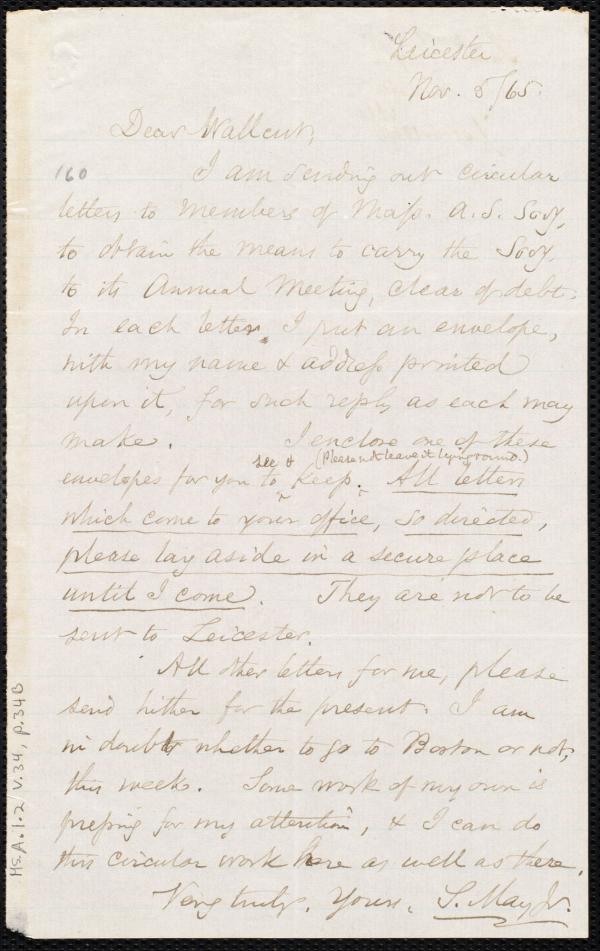 Leicester
Nov. 5/65.
Dear Wallcut,
160
I am sending out circular
letters to members of Mass. A. S. Socy,
to obtain the means to carry the Socy.
to its Annual Meeting, clear of debt.
In each letter, I put an envelope,
with my name & address printed
upon it, for such reply as each may
make. I enclose one of these
see & (Please not leave it lying round.)
envelopes for you to ^ keep. ^ All letters
which come to your office, so directed,
please lay aside in a secure place
until I come. They are not to be
sent to Leicester.
All other letters for me, please
send hither for the present. I am
in doubt whether to go to Boston or not,
this week. Some work of my own is
pressing for my attention, & I can do
this circular work here as well as there.
Very truly, Yours, S. May Jr.
Ms.A.1.2 V.34, p.34B